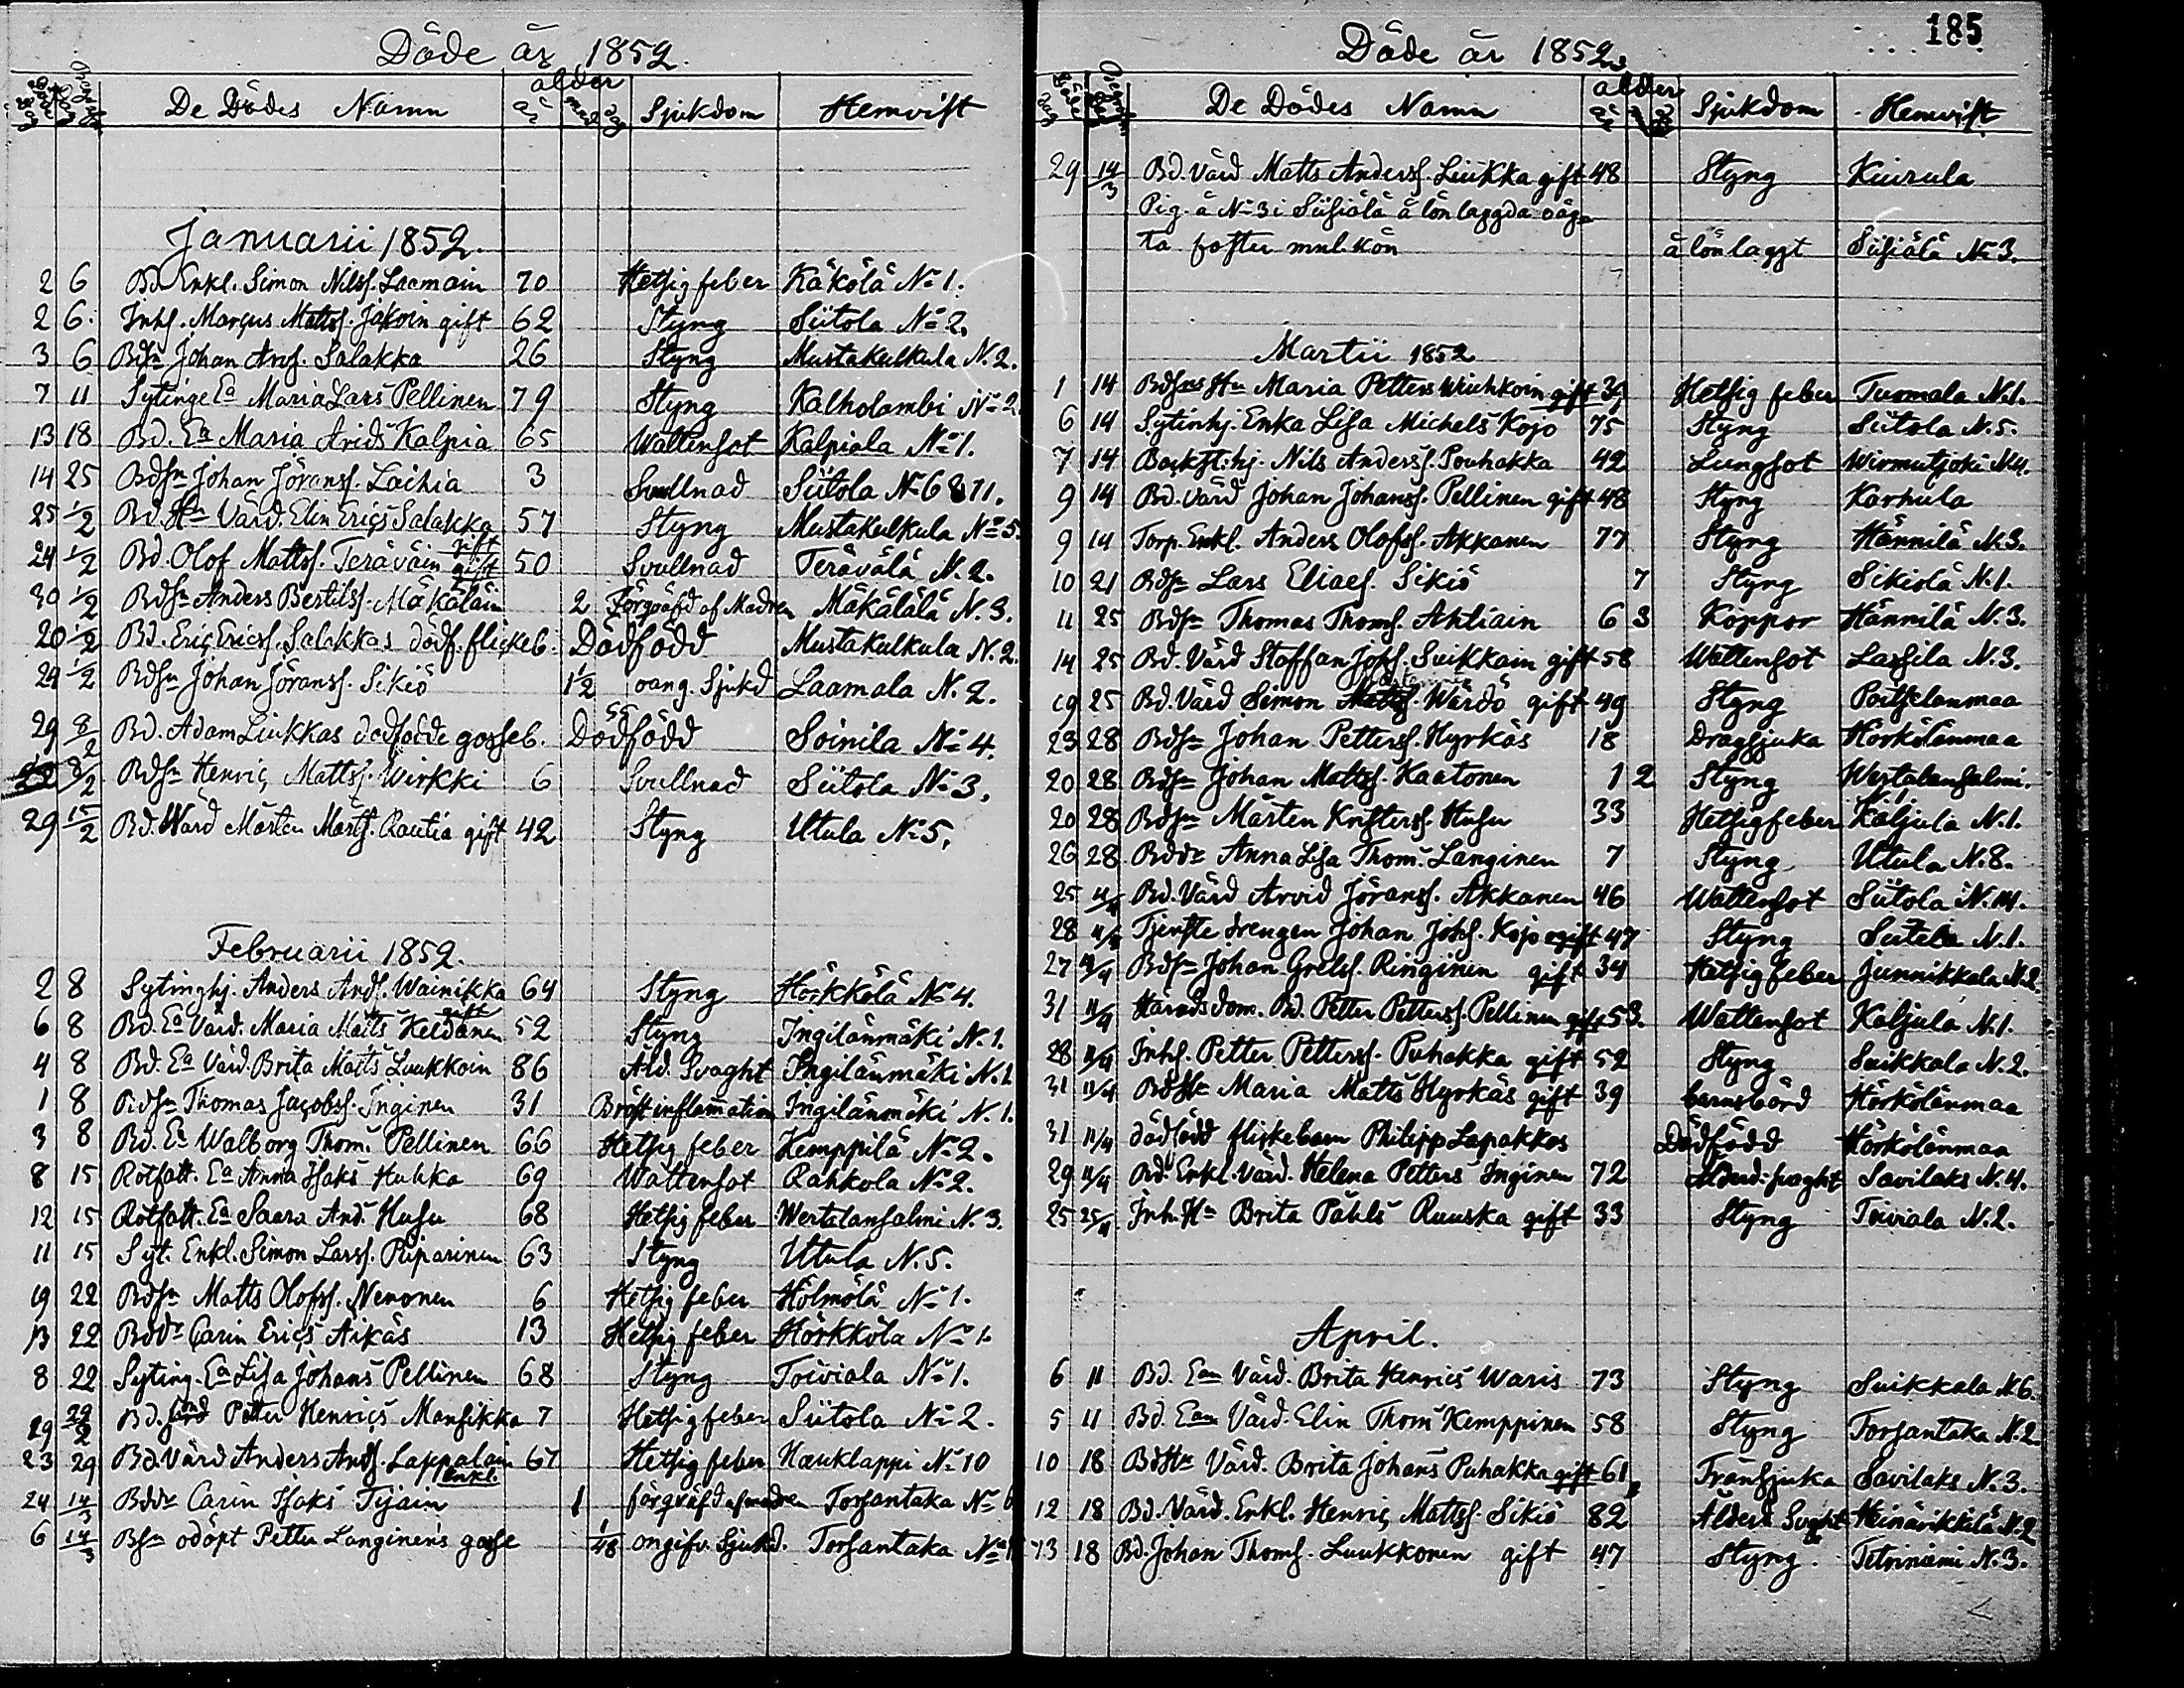 Döde år 1852.
De Dödes Namn ålder år mnd dag Sjukdom Hemvist
Januarii 1852.
2 6 Bd. Enkl. Simon Nilss. Laamain 70 Hetsig feber Käkölä No 1.
2 6. Inhs. Marcus Mattss. Jakoin gift 62 Styng Siitola No 2.
3 6 Bdsn Johan Ands. Salakka 26 Styng Mustakulkula N. 2.
7 11 Sytinge Ea Maria Lars Pellinen 79 Styng Kalholambi No 2
13 18 Bd. Ea Maria Arids Kalpia 65 Wattensot Kalpiala No 1.
14 25 Bdsn Johan Jöranss. Laihia 3 Svullnad Siitola No 6 & 11.
25 1/2 Bd. Hu Värd. Elin Erics Salakka 57 Styng Mustakulkula No 5.
gift
24 1/2 Bd. Olof Mattss. Teräväin gift 50 Svullnad Terävälä N. 2.
30 1/2 Bdsn Anders Bertilss. Mäkäläin 2 Förqväfd af Modren Mäkälälä N. 3.
20 1/2 Bd. Eric Ericss. Salakkas dödf. flickeb. Dödfödd Mustakulkula N. 2.
29 1/2 Bdsn Johan Jöranss. Sikiö 1 1/2 oang. Sjukd Laamala N. 2.
29 8/2 Bd. Adam Liukkas dödfödde gosseb. Dödfödd Soinila No 4.
8/2 Bdsn Henric Mattss. Wirkki 6 Svullnad Siitola No 3.
29 15/2 Bd. Wärd Mårten Mårts. Rautia gift 42 Styng Utula No 5.
Februarii 1852.
2 8 Sytinghj. Anders Ands. Wainikka 64 Styng Hörkkölä No 4.
gift
6 8 Bd. Ea Värd. Maria Matts Keldanen 52 Styng Ingilänmäki N. 1.
4 8 Bd. Ea Värd. Brita Matts Luukkoin 86 Ald. Svaght Ingilänmäki N. 1
1 8 Bdsn Thomas Jacobss. Inginen 31 Bröst inflamation Ingilänmäki N. 1.
3 8 Bd. Ea Walborg Thoms. Pellinen 66 Hetsig feber Kemppilä No 2.
8 15 Rotfatt. Ea Anna Isaks Huhka 69 Wattensot Rahkola No 2.
12 15 Rotfatt. Ea Saara And. Husu 68 Hetsig feber Wertalansalmi N. 3.
11 15 Syt. Enkl. Simon Larss. Piiparinen 63 Styng Utula N. 5.
19 22 Bdsn Matts Olofss. Nenonen 6 Hetsig feber Hölmölä No 1.
13 22 Bddr Carin Erics Äikäs 13 Hetsig feber Hörkkölä No 1.
8 22 Syting. Ea Lisa Johans Pellinen 68 Styng Toiviala No 1.
29 29/2 Bd. Petter Henrics Mansikka 7 Hetsig feber Siitola No 2.
23 29 Bd. Värd Anders Ands. Lappalain 67 Hetsig feber Haukiappi No 10
Enkl.
24 14/3 Bddr Carin Isaks Tijain 1 förqväfd af modren Torsantaka No 6
6 14/3 Bsn odöpt Petter Langinen's gosse 1/48 ongifv. Sjukd. Torsantaka No 1
185
Döde år 1852.
De Dödes Namn ålder år Sjukdom Hemvist
29 14/3 Bd. Värd Matts Anderss. Liukka gift 48 Styng Kuirula
Pig. å No 3 i Siisiälä å lön laggda oäg=
ta foster mnl. kön å lön laggt Siisiälä No 3.
Martii 1852
1 14 Bdsns Hu Maria Petters Wiuhkoin gift 31 Hetsig feber Tuomala N. 1.
6 14 Sytinhj. Enka Lisa Michels Kojo 75 Styng Siitola N. 5.
7 14 Backst:hj. Nils Anderss. Pouhakka 42 Lungsot Wirmutjoki N. 4.
9 14 Bd. Värd Johan Johanss. Pellinen gift 48 Styng Karhula
9 14 Torp. Enkl. Anders Olofss. Akkanen 77 Styng Hännilä N. 3.
10 21 Bdsn Lars Eliaes. Sikiö 7 Styng Sikiolä N. 1.
11 25 Bdsn Thomas Thoms. Ahtiain 6 3 Koppor Hännilä N. 3.
14 25 Bd. Värd Staffan Josss. Suikkain gift 58 Wattensot Lassila N. 3.
19 25 Bd. Värd Simon Mattss. Wärdö gift 49 Styng Poitselanmaa
23 28 Bdsn Johan Petterss. Hyrkäs 18 Dragsjuka Hörkölänmaa
20 28 Bdsn Johan Mattss. Kaatonen 1 2 Styng Wertalansalmi.
20 28 Bdsn Mårten Kristerss. Husu 33 Hetsig feber Käljula N. 1.
26 28 Bddr Anna Lisa Thoms. Langinen 7 Styng Utula N. 8.
25 11/4 Bd. Värd Arvid Jöranss. Akkanen 46 Wattensot Siitola N. 14.
28 11/4 Tjenste drengen Johan Johs. Kojo ogift 47 Styng Siitola N. 1.
27 11/4 Bdsn Johan Grelss. Ringinen gift 34 Hetsig feber Junnikkala N. 2.
31 11/4 Häradsdom. Bd. Petter Petterss. Pellinen gift 53. Wattensot Kaljula N. 1.
28 11/4 Inhs. Petter Petterss. Puhakka gift 52 Styng Suikkala N. 2.
31 11/4 Bd Hu Maria Matts Hyrkäs gift 39 barnsbörd Hörkölänmaa
31 11/4 dödfödd flickebarn Philipp Lapakkos Dödfödd Hörkölänmaa
29 11/4 Bd. Enkl. Värd. Helena Petters Inginen 72 Alderd. svaght Savilaks N. 4.
25 25/4 Inh. Hu Brita Påhls Ruuska gift 33 Styng Toiviala N. 2.
April.
6 11 Bd. Ean Värd. Brita Henrics Waris 73 Styng Suikkala N. 6.
5 11 Bd. Ean Värd. Elin Thoms Kemppinen 58 Styng Torsantaka N. 2.
10 18 Bd Hu Värd. Brita Johans Puhakka gift 61 Trånsjuka Savilaks N. 3.
12 18 Bd. Värd. Enkl. Henric Mattss. Sikiö 82 Ålderd. Svght Heinärikkilä N. 2
13 18 Bd. Johan Thoms. Luukkonen gift 47 Styng. Tetriniemi N. 3.